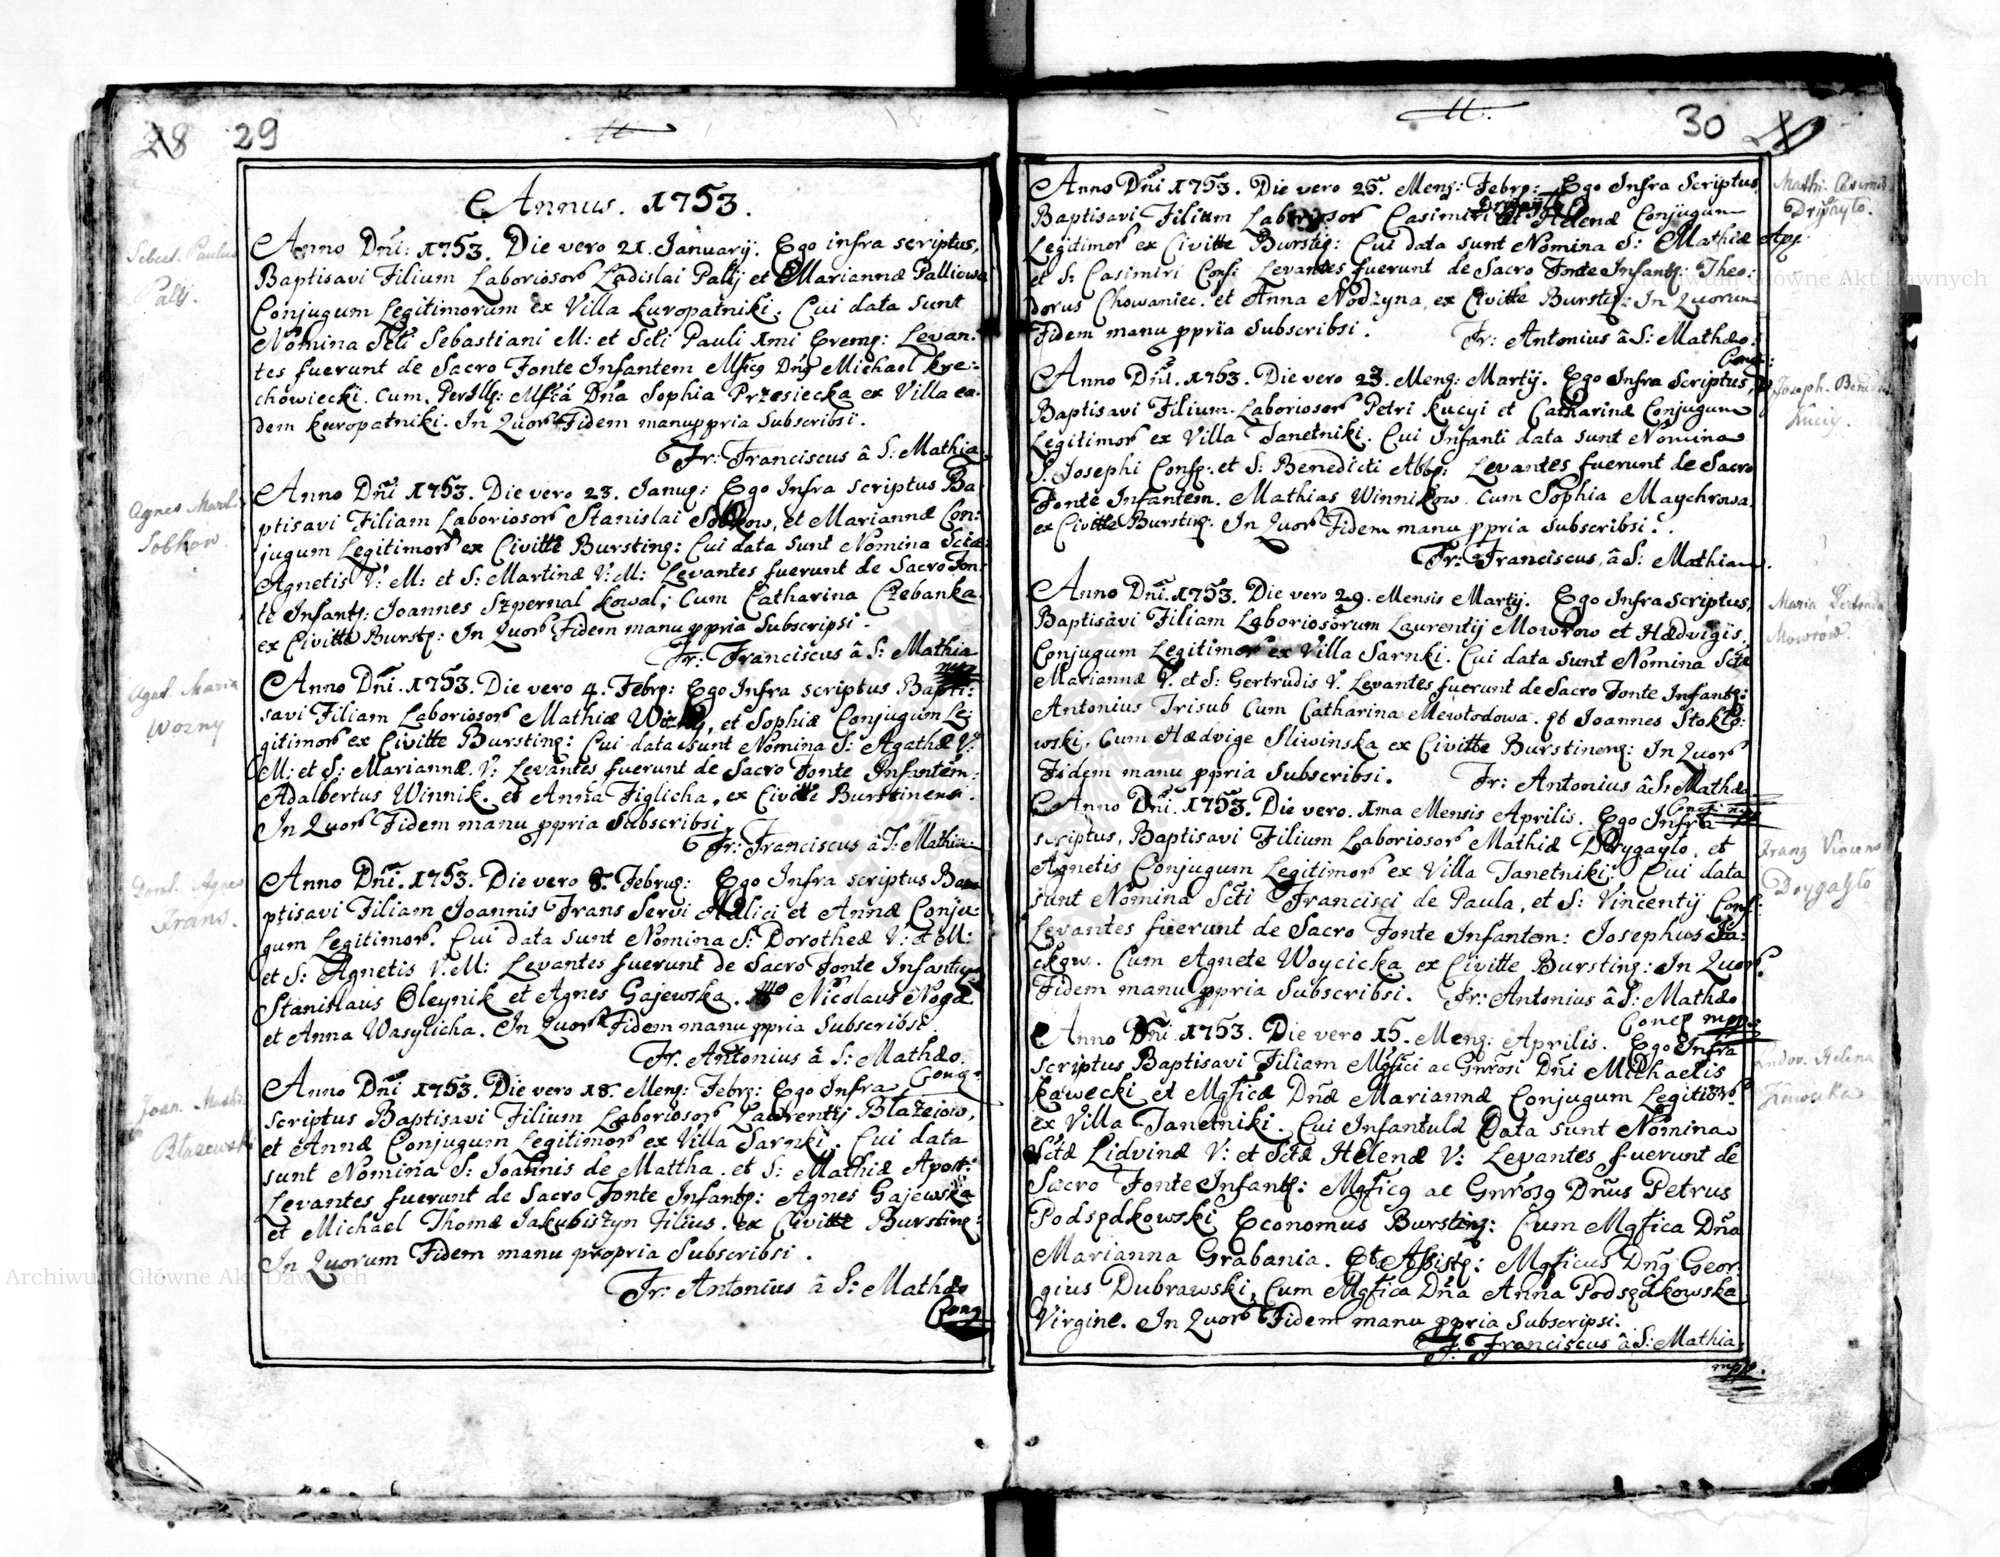 28 29
Annus. 1753.
Sebast. Paulus
Palij.
Anno Dñi: 1753. Die vero 21. Januarij. Ego infra scriptus,
Baptisavi Filium Laboriosor Ladislai Palij et Mariannæ Palliowa
Conjugum Legitimorum ex Villa Kuropatniki. Cui data sunt
Nomina Scti Sebastiani M: et Scti Pauli 1mi Eremg: Levan:
tes fuerunt de Sacro Fonte Infantem Mficg Dng Michael Kre:
chowiecki. Cum. Perillg: Mfca Dña Sophia Przesiecka ex Villa ea.
dem Kuropatniki. In Quor Fidem manu ppria Subscribsi.
Fr: Franciscus â S: Mathia
Agnes Mart.
Sobkow.
Anno Dñi 1753. Die vero 23. Janug: Ego Infra scriptus Ba
ptisavi Filiam Laboriosor Stanislai Sobkow, et Mariannæ Con:
jugum Legitimor ex Civitte Bursting: Cui data sunt Nomina Sctæ
Agnetis V: M: et S: Martinæ V: M: Levantes fuerunt de Sacro Fon:
te Infantg: Joannes Szpernal Kowal; Cum Catharina Czebanka
ex Civitte Burstg: In Quor Fidem manu ppria Subscripsi.
Fr: Franciscus â S: Mathia
mpp
Agat. Maria
Wozny
Anno Dñi. 1753. Die vero 4. Febrg: Ego Infra scriptus Bapti:
savi Filiam Laboriosor Mathiæ Wozny, et Sophiæ Conjugum Le:
gitimor ex Civitte Bursting: Cui data sunt Nomina S: Agathæ V:
M: et S: Mariannæ. V: Levantes fuerunt de Sacro Fonte Infantem:
Adalbertus Winnik. et Anna Figlicha, ex Civitte Burstinensi.
In Quor Fidem manu ppria Subscribsi.
Fr: Franciscus â S: Mathia
Dorot. Agnes
Frans.
Anno Dñi. 1753. Die vero 8. Februg: Ego Infra scriptus Ba
ptisavi Filiam Joannis Frans Servi Aulici et Annæ Conju:
gum Legitimor. Cui data sunt Nomina S: Dorotheæ V: et M:
et S: Agnetis V. M: Levantes fuerunt de Sacro Fonte Infantg
Stanislaus Oleynik et Agnes Gajewska. Nicolaus Noga
et Anna Wasylicha. In Quor Fidem manu ppria Subscribsi.
Fr. Antonius â S: Mathæo.
Cong
Joan. Math.
Blazewski
Anno Dñi 1753. Die vero 18. Meng: Febrg: Ego Infra
scriptus Baptisavi Filium Laboriosor Laurentij Błażejow,
et Annæ Conjugum Legitimor ex Villa Sarnki. Cui data
sunt Nomina S: Joannis de Mattha. et S: Mathiæ Apost:
Levantes fuerunt de Sacro Fonte Infantg: Agnes Gajewska
et Michael Thomæ Jakubiszyn Filius. ex Civitte Bursting:
In Quorum Fidem manu propria Subscribsi.
Fr: Antonius â S: Mathæo
Cong
30
Mathi. Casimir.
Drigayło.
Anno Dñi 1753. Die vero 25. Meng: Febrg: Ego Infra Scriptus,
Drigayło
Baptisavi Filium Laboriosor Casimiri et Helenæ Conjugum
Legitimor ex Civitte Burstig: Cui data sunt Nomina S: Mathiæ Ap:
et S: Casimiri Conf: Levantes fuerunt de Sacro Fonte Infantg: Theo:
dorus Chowaniec. et Anna Nodzyna, ex Civitte Burstg: In Quorum
Fidem manu ppria Subscribsi.
Fr: Antonius â S: Mathæo:
Cong:
Joseph. Bened.
Kuciy.
Anno Dñi. 1753. Die vero 23. Meng: Martij. Ego Infra Scriptus,
Baptisavi Filium. Laboriosor Petri Kucyi et Catharinæ Conjugum
Legitimor ex Villa Janetniki. Cui Infanti data sunt Nomina
S. Josephi Consg: et S: Benedicti Abbg: Levantes fuerunt de Sacro
Fonte Infantem. Mathias Winnikow. Cum Sophia Maychrowa.
ex Civitte Bursting: In Quor Fidem manu ppria Subscribsi.
Fr: Franciscus, â S: Mathia
Maria Gertruda
Mowrow.
Anno Dñi. 1753. Die vero 29. Mensis Martij. Ego Infra Scriptus,
Baptisavi Filiam Laboriosorum Laurentij Mowrow et Hædvigis,
Conjugum Legitimor ex Villa Sarnki. Cui data sunt Nomina Sctæ
Mariannæ V. et S: Gertrudis V. Levantes fuerunt de Sacro Fonte Infantg:
Antonius Trisub Cum Catharina Mewłodowa. et Joannes Stokło:
wski, Cum Hædvige Sliwinska ex Civitte Burstineng: In Quor
Fidem manu ppria Subscribsi.
Fr: Antonius â S: Mathæo
Franz Vincens
Drygayło
Anno Dñi. 1753. Die vero. 1ma Mensis Aprilis. Ego Infra
scriptus, Baptisavi Filium Laboriosor Mathiæ Drygayło, et
Agnetis Conjugum Legitimor ex Villa Janetniki: Cui data
sunt Nomina Scti Francisci de Paula, et S: Vincentij Conf:
Levantes fuerunt de Sacro Fonte Infantem: Josephus Ja:
ckow. Cum Agnete Woycicka ex Civitte Bursting: In Quor
Fidem manu ppria Subscribsi. Fr: Antonius â S: Mathæo
Conc mpp:
Ludov. Helena
Kawecka
Anno Dñi. 1753. Die vero 15. Meng: Aprilis. Ego Infra
scriptus Baptisavi Filiam Mgfici ac Gnrosi Dñi Michaelis
Kawecki et Mgficæ Dñæ Mariannæ Conjugum Legitimor
ex Villa Janetniki. Cui Infantulæ Data sunt Nomina
Sctæ Lidvinæ V: et Sctæ Helenæ V: Levantes fuerunt de
Sacro Fonte Infantg: Mgficg ac Gnrosg Dñus Petrus
Podsędkowski Economus Bursting: Cum Mgfica Dña
Marianna Grabania. Et Assistg: Mgficus Dng Geor
gius Dubrawski, Cum Mgfica Dña Anna Podsędkowska
Virgine. In Quor Fidem manu ppria Subscripsi.
F. Franciscus â S: Mathia
mpp.
Archiwum Główne Akt Dawnych
Archiwum Główne Akt Dawnych